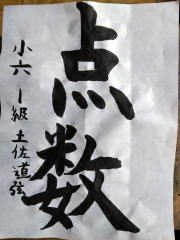 点数
小六 1級 土佐道弦